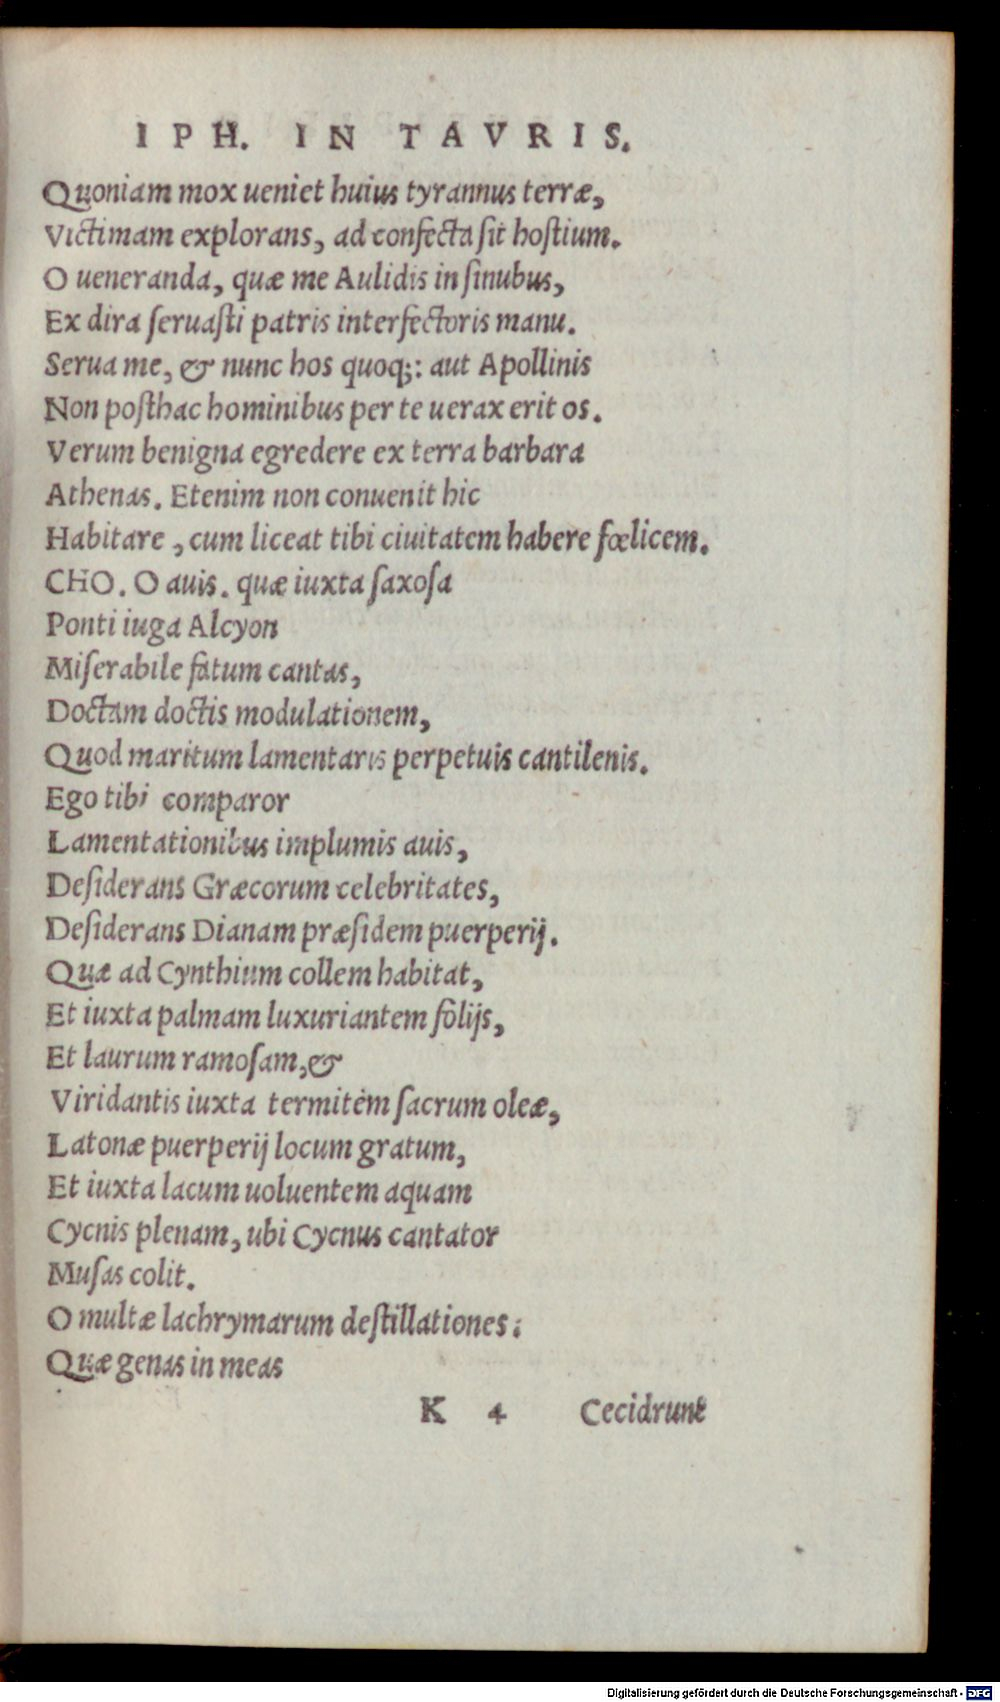 IPH. IN TAVRIS.
Quoniam mox ueniet huius tyrannus terræ,
Victimam explorans, ad confecta ſit hoſtium.
O ueneranda, quæ me Aulidis in ſinubus,
Ex dira ſeruaſti patris interfectoris manu.
Serua me, & nunc hos quoq;: aut Apollinis
Non poſthac hominibus per te uerax erit os.
Verum benigna egredere ex terra barbara
Athenas. Etenim non conuenit hic
Habitare, cum liceat tibi ciuitatem habere fœlicem.
CHO. O auis. quæ iuxta ſaxoſa
Ponti iuga Alcyon
Miſerabile fatum cantas,
Doctam doctis modulationem,
Quod maritum lamentaris perpetuis cantilenis.
Ego tibi comparor
Lamentationibus implumis auis,
Deſiderans Græcorum celebritates,
Deſiderans Dianam præſidem puerperij.
Quæ ad Cynthium collem habitat,
Et iuxta palmam luxuriantem folijs,
Et laurum ramoſam, &
Viridantis iuxta termitem ſacrum oleæ,
Latonæ puerperij locum gratum,
Et iuxta lacum uoluentem aquam
Cycnis plenam, ubi Cycnus cantator
Muſas colit.
O multæ lachrymarum deſtillationes:
Quæ genas in meas
K 4 Cecidrunt
Digitalisierung gefördert durch die Deutsche Forschungsgemeinschaft - DFG